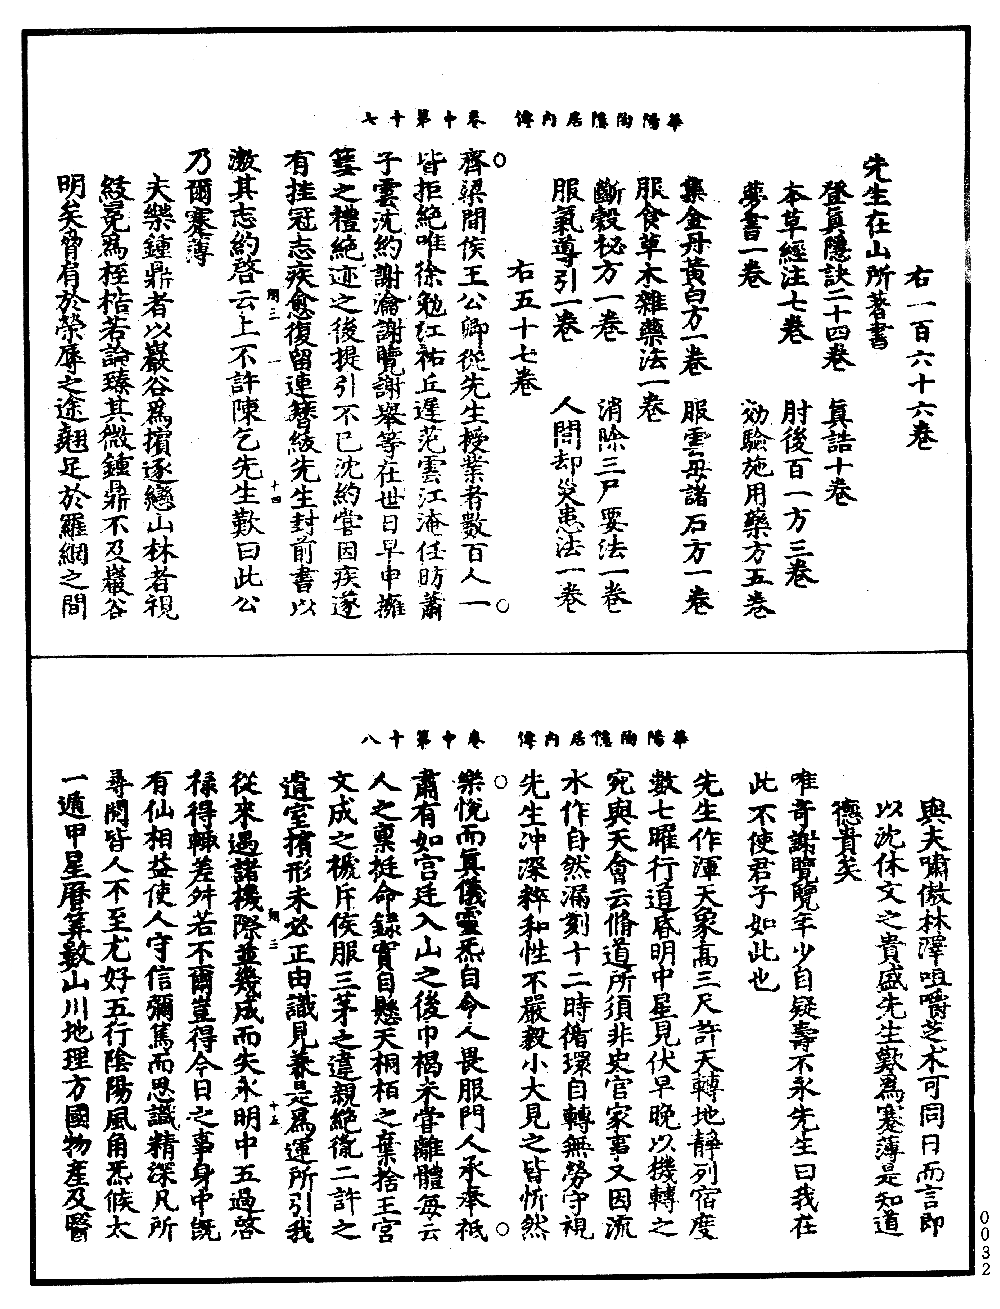 華陽陶隱居內傳　卷中第十七
右一百六十六卷
先生在山所著書
登真隱訣二十四卷　真誥十卷
本草經注七卷　肘後百一方三卷
夢書一卷　効驗施用藥方五卷
集金丹黃白方一卷　服雲母諸石方一卷
服食草木雜藥法一卷
斷穀秘方一卷　消除三尸要法一卷
服氣導引一卷　人間却災患法一卷
右五十七卷
齊梁間侯王公卿從先生授業者數百人一
皆拒絕唯徐勉江祐丘遲范雲江淹任昉蕭
子雲沈約謝瀹謝覽謝舉等在世日早申擁
篲之禮絕迹之後提引不已沈約嘗因疾遂
有挂冠志疾愈復留連簪紱先生封前書以
激其志約啓云上不許陳乞先生歎曰此公
乃爾蹇薄
夫樂鍾鼎者以巖谷為擯逐戀山林者視
紱冕為桎梏若論臻其微鍾鼎不及巖谷
明矣胥有於榮辱之途翹足於羅網之間
翔三　一　十四
華陽陶隱居內傳　卷中第十八
與夫嘯傲林澤咀嚼芝朮可同日而言即
以沈休文之貴盛先生歎為蹇薄是知道
德貴矣
唯奇謝覽覽年少自疑壽不永先生曰我在
此不使君子如此也
先生作渾天象高三尺許天轉地靜列宿度
數七曜行道昏明中星見伏早晚以機轉之
宛與天會云脩道所須非史官家事又因流
水作自然漏刻十二時循環自轉無勞守視
先生沖深粹和性不嚴毅小大見之皆忻然
樂悅而真儀靈炁自令人畏服門人承奉祗
肅有如宮廷入山之後巾褐未嘗離體每云
人之稟挺命錄實自懸天桐栢之棄捨王宮
文成之褫斥侯服三茅之違親絕俗二許之
遺室擯形未必正由識見蓋是為運所引我
從來遇諸機際並幾成而失永明中五過啓
祿得輙差舛若不爾豈得今日之事身中旣
有仙相益使人守信彌篤而思識精深凡所
尋閱皆人不至尤好五行陰陽風角炁候太
一遁甲星曆算數山川地理方國物產及醫
翔三　十五
0032